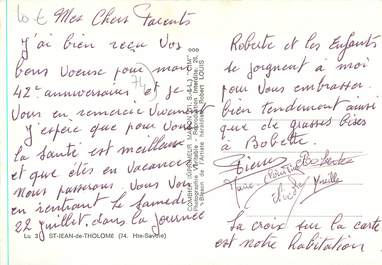 Mes Chers Parents
J'ai bien reçu Vos
bons Voeux pour mon
42e anniversaire et je
Vous en remercie Vivement
J'espère que pour Vous
la santé est meilleure
et que etes en Vacances
Nous passerons Vous Voir
en rentrant le Samedi
22 juillet dans la journée
Lu 3 ST-JEAN-de-THOLOME (74. Hte-Savoie)
COMBIER IMPRIMEUR MACON (71. S.-&-L.) "CIM"
Robert LOUIS
Roberte et les Enfants
se joignent à moi
pour Vous embrasser
bien tendrement ainsi
que de grosses bises
à Bobette
Pierre
La croix sur la carte
est notre habitation